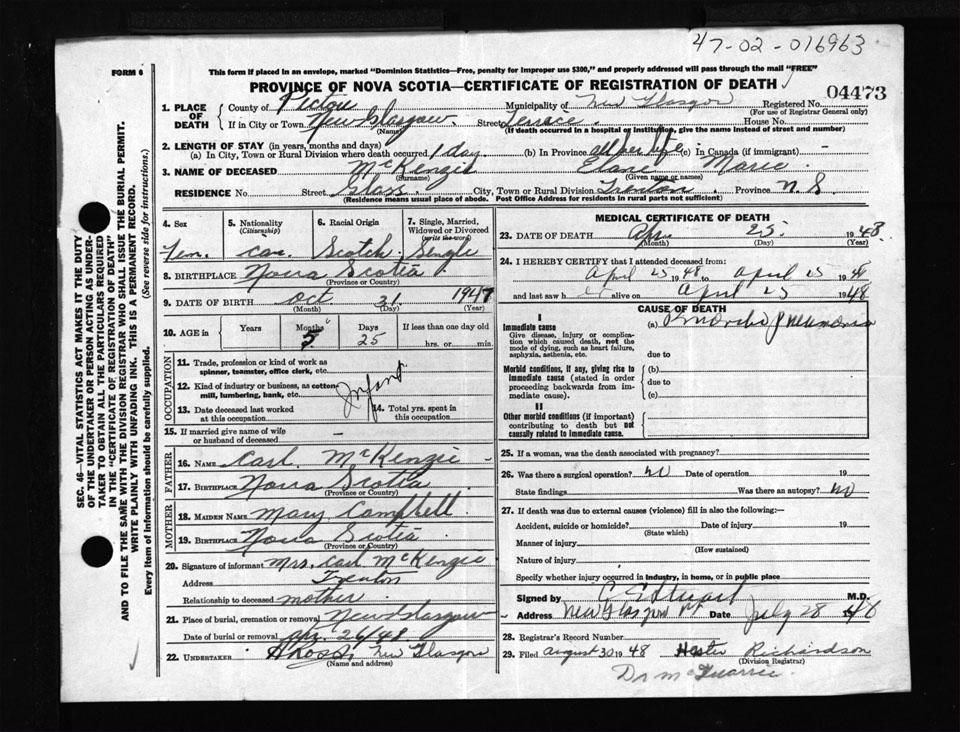 47-02-016963
FORM 6
This form if placed in an envelope, marked "Dominion Statistics—Free, penalty for improper use $300," and properly addressed will pass through the mail "FREE"
PROVINCE OF NOVA SCOTIA—CERTIFICATE OF REGISTRATION OF DEATH
04473
1. PLACE OF DEATH County of Pictou Municipality of New Glasgow Registered No.
(For use of Registrar General only)
If in City or Town New Glasgow Street Terrace House No.
(Name) (If death occurred in a hospital or institution, give the name instead of street and number)
2. LENGTH OF STAY (in years, months and days)
(a) In City, Town or Rural Division where death occurred 1 day. (b) In Province all her life (c) In Canada (if immigrant) —
3. NAME OF DECEASED McKenzie Elane Marie
(Surname) (Given name or names)
RESIDENCE No. Street Glass. City, Town or Rural Division Trenton. Province N. S.
(Residence means usual place of abode. Post Office Address for residents in rural parts not sufficient)
SEC. 46—VITAL STATISTICS ACT MAKES IT THE DUTY
OF THE UNDERTAKER OR PERSON ACTING AS UNDER-
TAKER TO OBTAIN ALL THE PARTICULARS REQUIRED
IN THE "CERTIFICATE OF REGISTRATION OF DEATH"
AND TO FILE THE SAME WITH THE DIVISION REGISTRAR WHO SHALL ISSUE THE BURIAL PERMIT.
WRITE PLAINLY WITH UNFADING INK. THIS IS A PERMANENT RECORD.
Every item of Information should be carefully supplied. (See reverse side for instructions.)
4. Sex 5. Nationality 6. Racial Origin 7. Single, Married,
(Citizenship) Widowed or Divorced
(write the word)
Fem. Can. Scotch. Single
8. BIRTHPLACE Nova Scotia
(Province or Country)
9. DATE OF BIRTH Oct 31. 1947
(Month) (Day) (Year)
10. AGE in Years Months Days If less than one day old
5 25 hrs. or min.
OCCUPATION
11. Trade, profession or kind of work as
spinner, teamster, office clerk, etc.
12. Kind of industry or business, as cotton
mill, lumbering, bank, etc.
Infant
13. Date deceased last worked
at this occupation
14. Total yrs. spent in
this occupation
15. If married give name of wife
or husband of deceased —
FATHER
16. NAME Carl. McKenzie
17. BIRTHPLACE Nova Scotia
(Province or Country)
MOTHER
18. MAIDEN NAME Mary Campbell
19. BIRTHPLACE Nova Scotia
(Province or Country)
20. Signature of informant Mrs. Carl McKenzie
Address Trenton
Relationship to deceased mother
21. Place of burial, cremation or removal New Glasgow
Date of burial or removal Apr. 26/48.
22. UNDERTAKER New Glasgow
(Name and address)
MEDICAL CERTIFICATE OF DEATH
23. DATE OF DEATH Apr. 25. 1948.
(Month) (Day) (Year)
24. I HEREBY CERTIFY that I attended deceased from:
April 25 1948 to April 25 1948
and last saw her alive on April 25 1948
CAUSE OF DEATH
I
Immediate cause
Give disease, injury or complication which caused death, not the mode of dying, such as heart failure, asphyxia, asthenia, etc.
(a) Broncho pneumonia
due to
Morbid conditions, if any, giving rise to immediate cause (stated in order proceeding backwards from immediate cause).
(b)
due to
(c)
II
Other morbid conditions (if important) contributing to death but not causally related to immediate cause.
25. If a woman, was the death associated with pregnancy?
26. Was there a surgical operation? No Date of operation 19
State findings Was there an autopsy? No
27. If death was due to external causes (violence) fill in also the following:—
Accident, suicide or homicide? Date of injury 19
(State which)
Manner of injury
(How sustained)
Nature of injury
Specify whether injury occurred in industry, in home, or in public place
Signed by G E Stuart M.D.
Address New Glasgow Date July 28 1948
28. Registrar's Record Number
29. Filed August 30 1948 Hester Richardson
(Division Registrar)
Dr McQuarrie